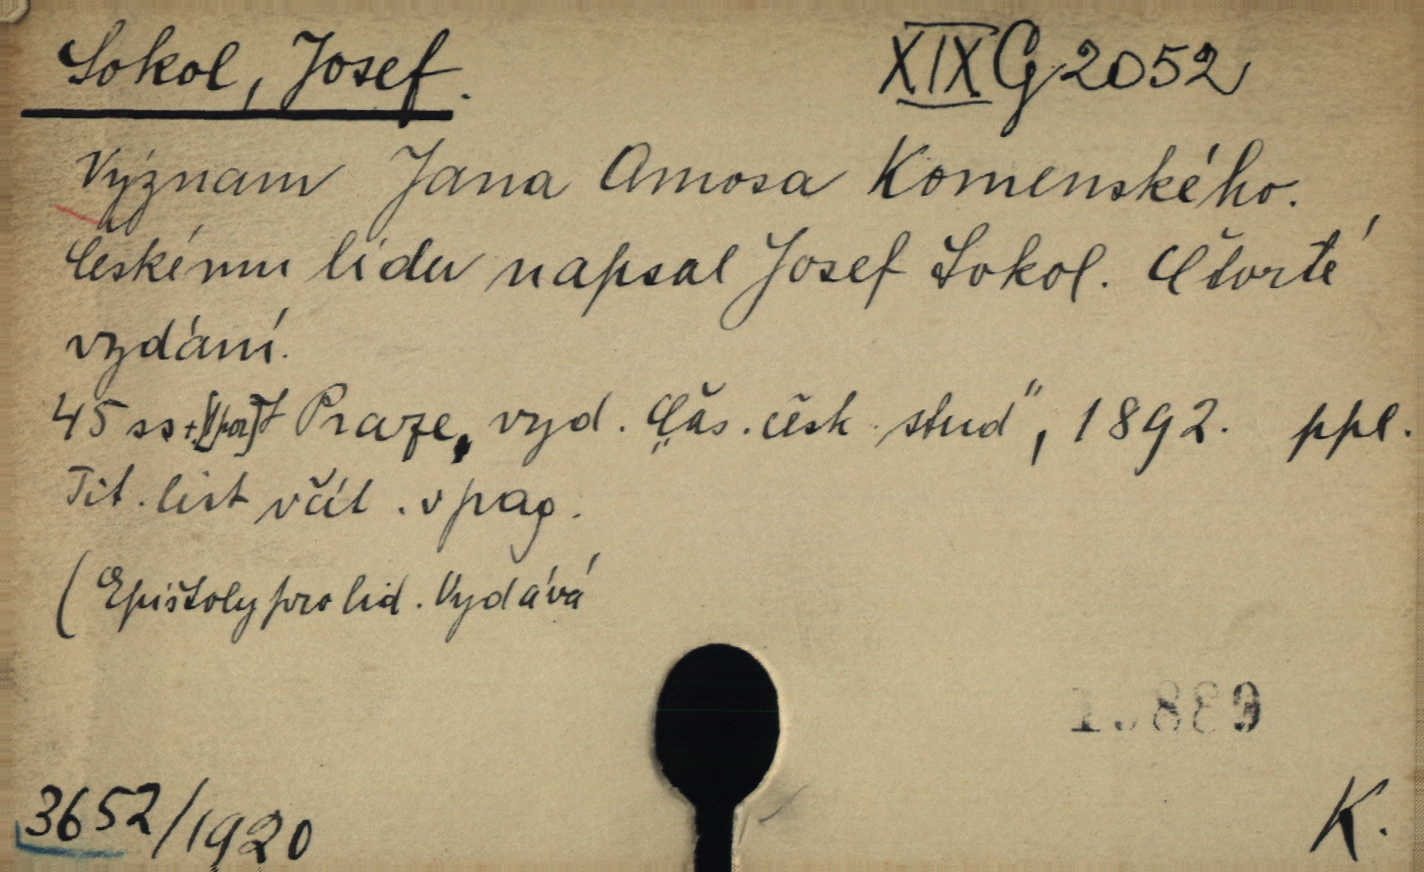 Sokol, Josef.
XIX G 2052
Význam Jana Amosa Komenského.
Českému lidu napsal Josef Sokol. Čtvrté
vydání.
45 ss + [1 por.] V Praze, vyd. „Čas. česk. stud", 1892. ppl.
Tit. list včít. v pag.
(Epištoly pro lid. Vydává
3652/1920
K.